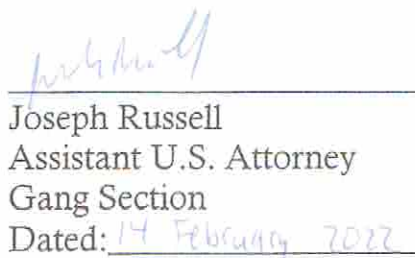 Joseph Russell
Assistant U.S. Attorney
Gang Section
Dated: 14 February 2022